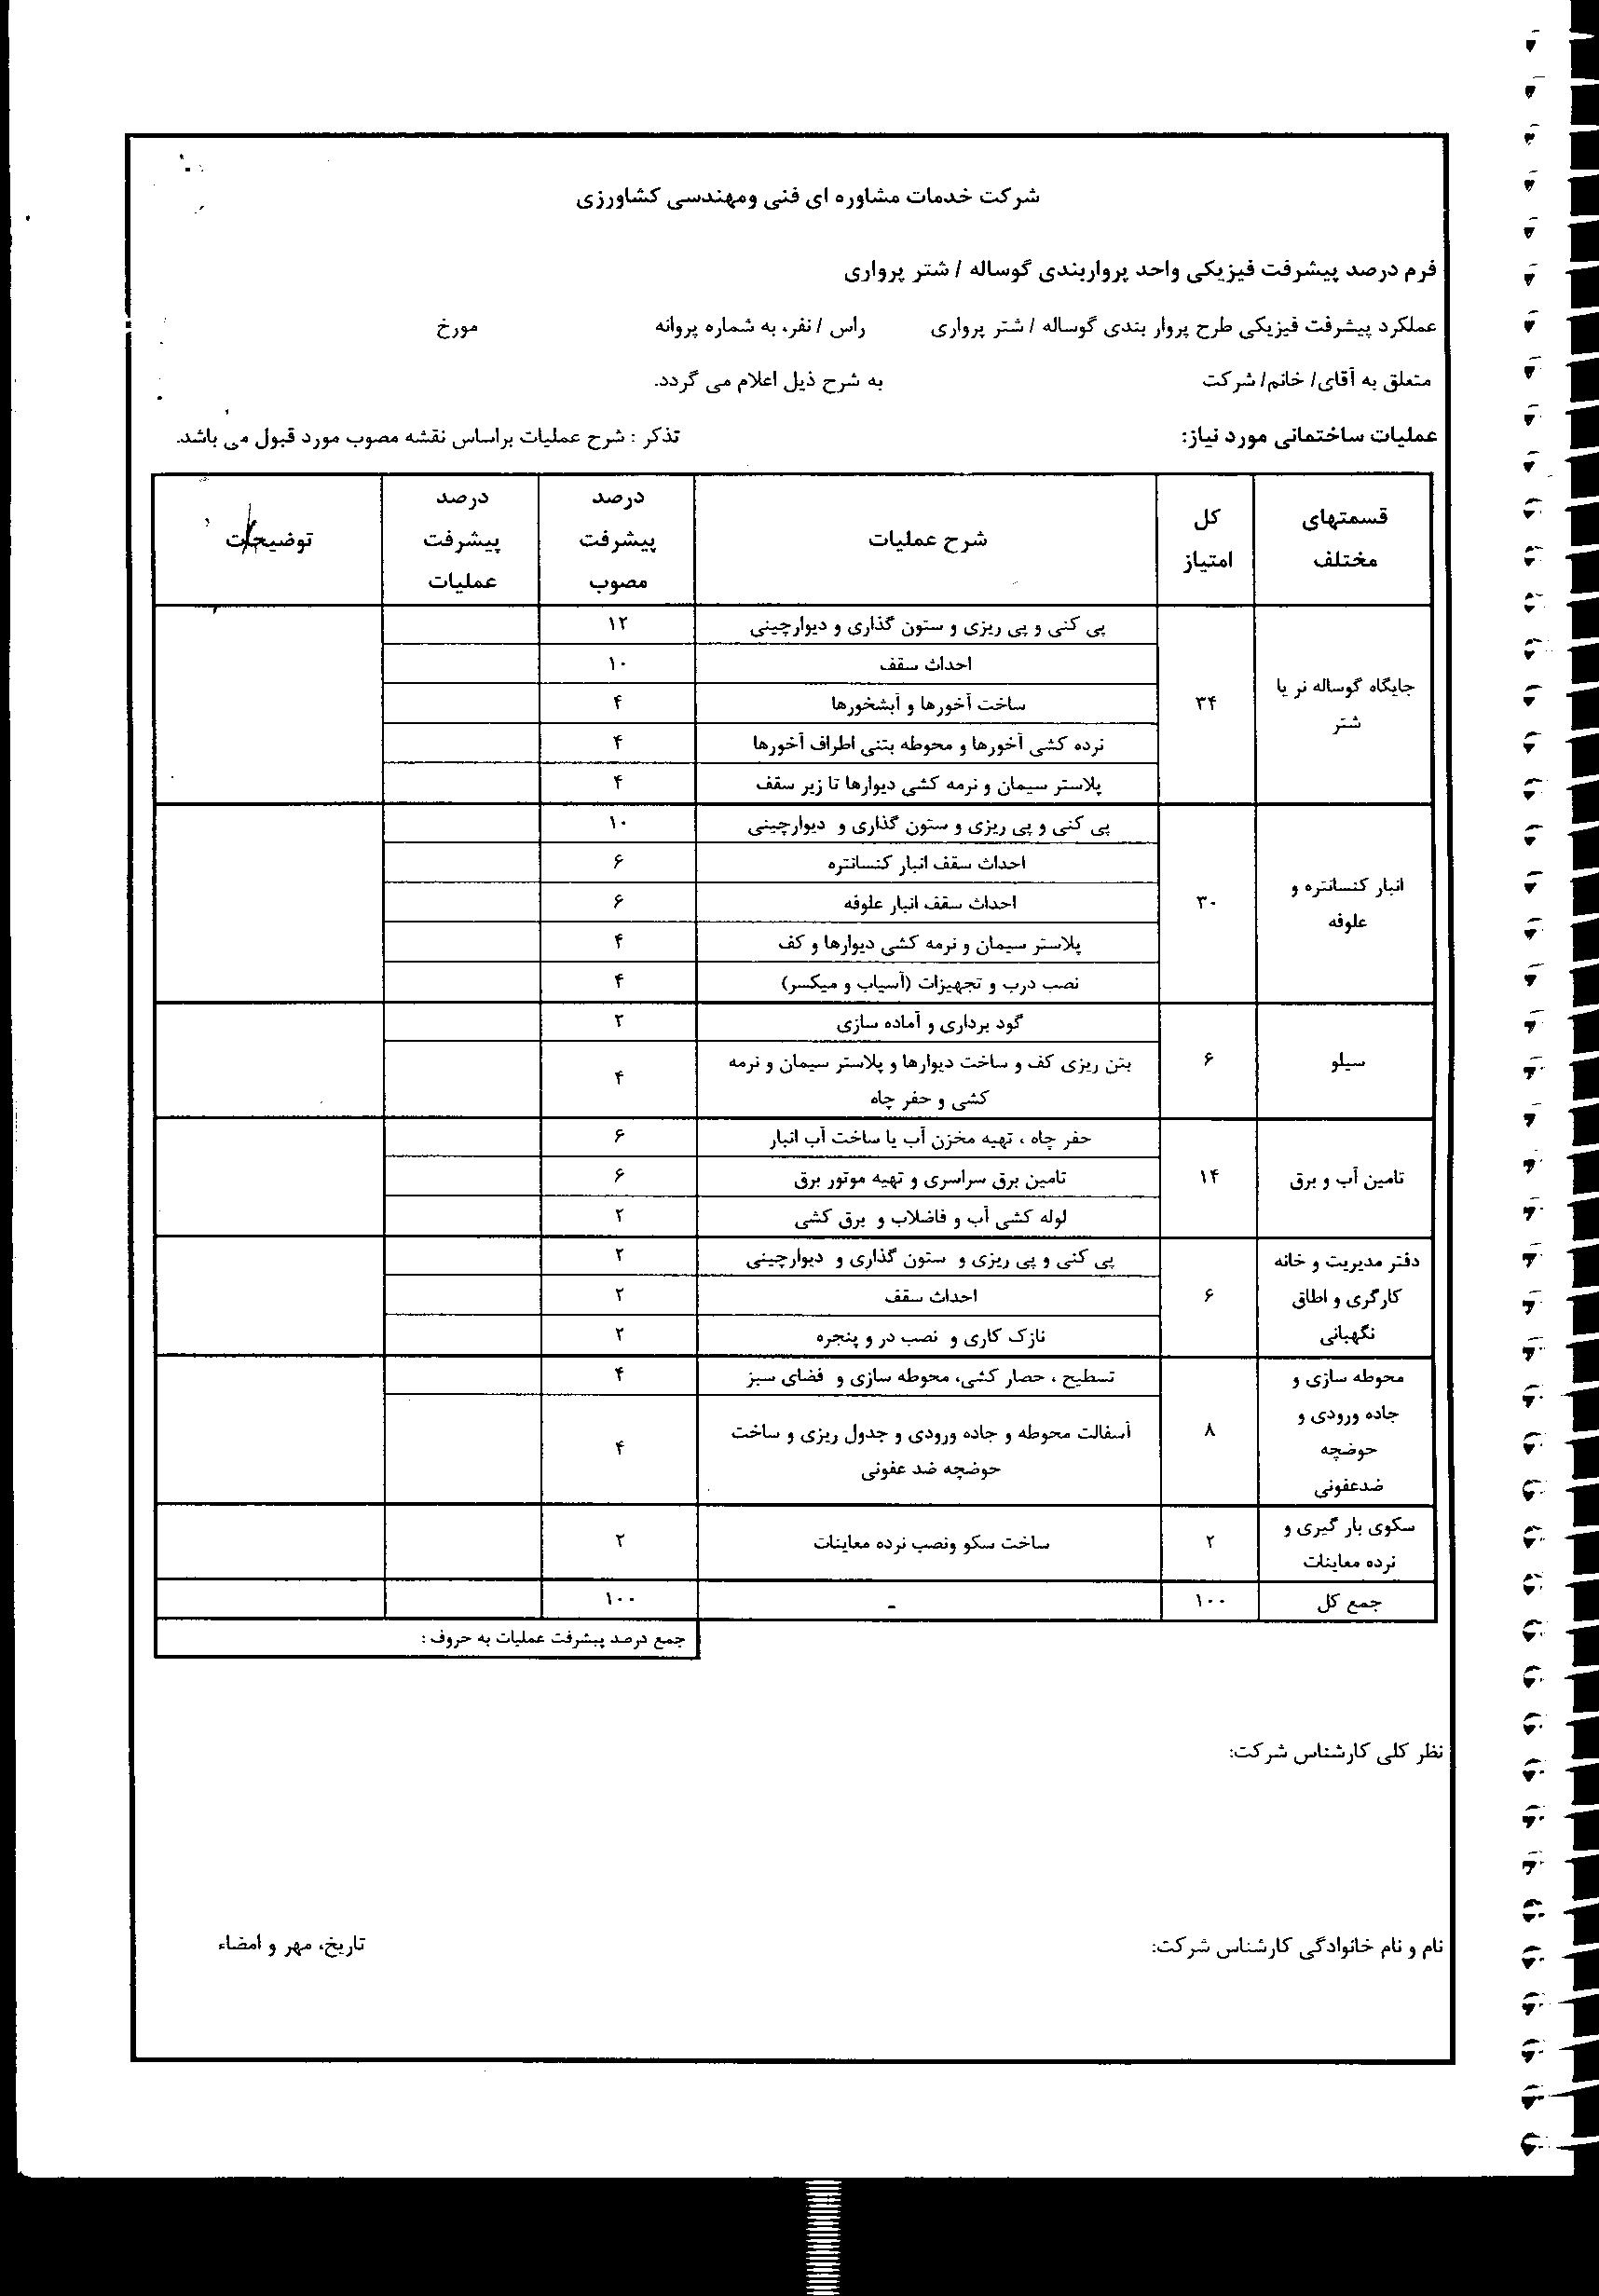 شرکت خدمات مشاوره ای فنی ومهندسی کشاورزی
فرم درصد پیشرفت فیزیکی واحد پرواربندی گوساله / شتر پرواری
عملکرد پیشرفت فیزیکی طرح پروار بندی گوساله / شتر پرواری راس / نفر، به شماره پروانه مورخ
متعلق به آقای/ خانم/ شرکت به شرح ذیل اعلام می گردد.
عملیات ساختمانی مورد نیاز: تذکر : شرح عملیات براساس نقشه مصوب مورد قبول می باشد.
قسمتهای مختلف کل امتیاز شرح عملیات درصد پیشرفت مصوب درصد پیشرفت عملیات توضیحات
جایگاه گوساله نر یا شتر ۳۴
پی کنی و پی ریزی و ستون گذاری و دیوارچینی ۱۲
احداث سقف ۱۰
ساخت آخورها و آبشخورها ۴
نرده کشی آخورها و محوطه بتنی اطراف آخورها ۴
پلاستر سیمان و نرمه کشی دیوارها تا زیر سقف ۴
انبار کنسانتره و علوفه ۳۰
پی کنی و پی ریزی و ستون گذاری و دیوارچینی ۱۰
احداث سقف انبار کنسانتره ۶
احداث سقف انبار علوفه ۶
پلاستر سیمان و نرمه کشی دیوارها و کف ۴
نصب درب و تجهیزات (آسیاب و میکسر) ۴
سیلو ۶
گود برداری و آماده سازی ۲
بتن ریزی کف و ساخت دیوارها و پلاستر سیمان و نرمه
کشی و حفر چاه ۴
تامین آب و برق ۱۴
حفر چاه ، تهیه مخزن آب یا ساخت آب انبار ۶
تامین برق سراسری و تهیه موتور برق ۶
لوله کشی آب و فاضلاب و برق کشی ۲
دفتر مدیریت و خانه
کارگری و اطاق
نگهبانی ۶
پی کنی و پی ریزی و ستون گذاری و دیوارچینی ۲
احداث سقف ۲
نازک کاری و نصب در و پنجره ۲
محوطه سازی و
جاده ورودی و
حوضچه
ضدعفونی ۸
تسطیح ، حصار کشی، محوطه سازی و فضای سبز ۴
آسفالت محوطه و جاده ورودی و جدول ریزی و ساخت
حوضچه ضد عفونی ۴
سکوی بار گیری و
نرده معاینات ۲
ساخت سکو ونصب نرده معاینات ۲
جمع کل ۱۰۰ - ۱۰۰
جمع درصد پیشرفت عملیات به حروف :
نظر کلی کارشناس شرکت:
نام و نام خانوادگی کارشناس شرکت: تاریخ، مهر و امضاء